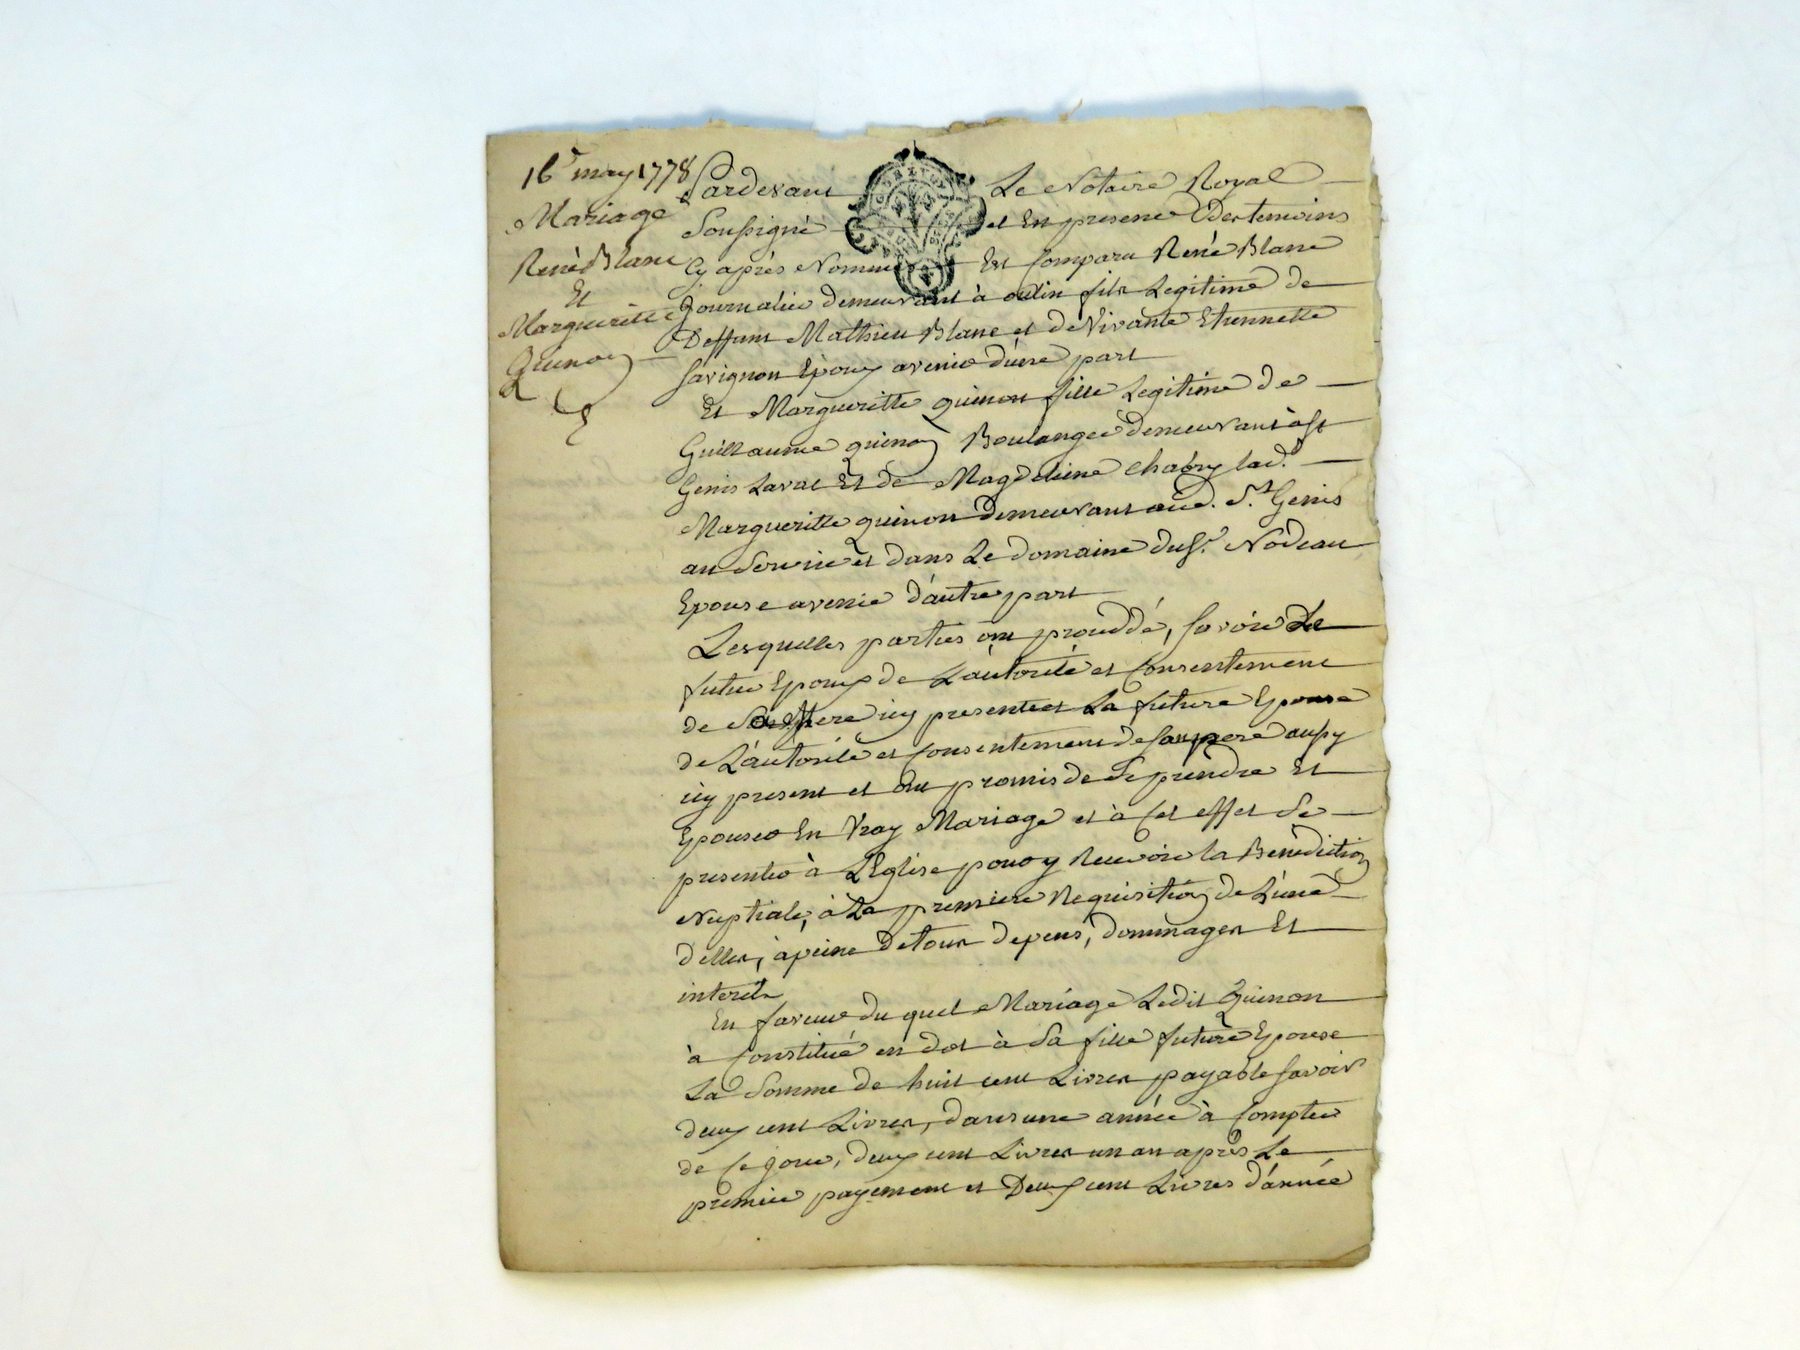 16e may 1778
Mariage
René Blanc
Et
Margueritte
Quinon
Pardevant Le Notaire Royal
Soussigné et En presence Des temoins
Cy après Nommés Est Comparu René Blanc
Journalier demeurant à oulin fils Legitime de
Deffunt Mathieu Blanc et de Vivante Etiennette
Savignon Epoux avenir d'une part
Et Margueritte quinon fille Legitime de
Guillaume quinon Boulanger demeurant à St
Genis Laval Et de Magdeleine Chabry lad.e
Margueritte quinon demeurant aud. St Genis
au Service et dans Le domaine du Sr. Nodeau
Epouse avenir d'autre part
Lesquelles parties ont proceddé, savoir Le
futur Epoux de L'autorité et Consentement
de Sa Mere icy presente et La future Epouse
de L'autorité et Consentement de Son pere aussy
icy present et ont promis de Se prendre Et
Epouser En Vray Mariage et à Cet effet Se
presenter à L'Eglise pour y Recevoir la Benediction
Nuptiale, à La premiere Requisition de L'une
d'elles, à peine de tous depens, dommages Et
interets
En faveur du quel Mariage Ledit Quinon
à Constitué en dot à Sa fille future Epouse
La Somme de huit cent Livres payable savoir
deux cent Livres, dans une année à Compter
de Ce jour, deux cent Livres un an après Le
premier payement et Deux cent Livres d'année